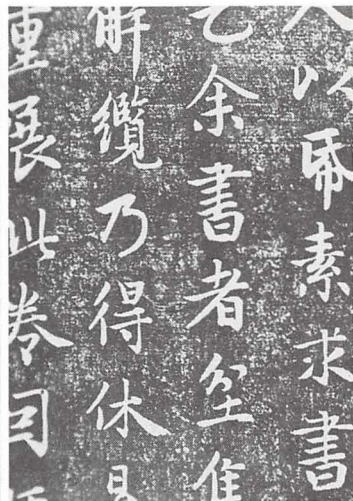 人以帋素求書
乞余書者坌
解纜乃得休
重展此卷因